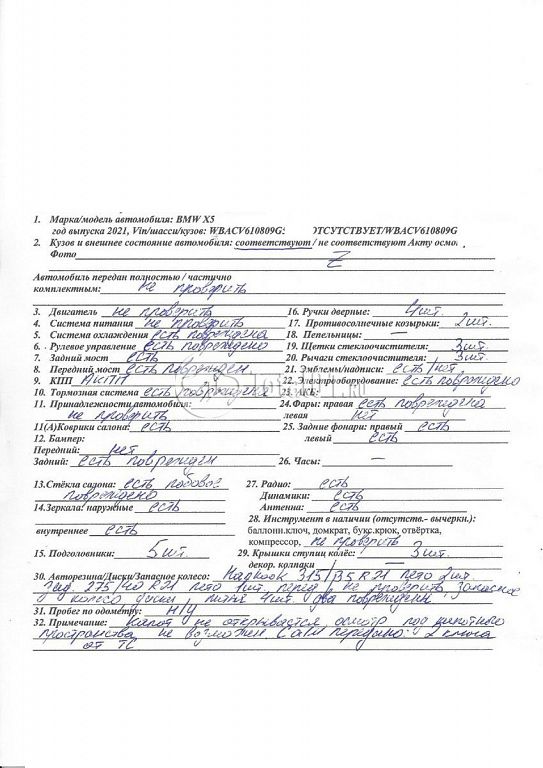 1. Марка/модель автомобиля: BMW X5
год выпуска 2021, Vin/шасси/кузов: WBACV610809G: ОТСУТСТВУЕТ/WBACV610809G
2. Кузов и внешнее состояние автомобиля: соответствуют / не соответствуют Акту осмо.
Фото Z
Автомобиль передан полностью / частично
комплектным: не проверить
3. Двигатель не проверить
4. Система питания не проверить
5. Система охлаждения есть повреждена
6. Рулевое управление есть повреждено
7. Задний мост есть
8. Передний мост есть поврежден
9. КПП АКПП
10. Тормозная система есть повреждена
11. Принадлежности автомобиля:
не проверить
11(А)Коврики салона: есть
12. Бампер:
Передний: нет
Задний: есть поврежден
13.Стёкла салона: есть лобовое
повреждено
14.Зеркала: наружные есть
внутреннее есть
15. Подголовники: 5 шт.
16. Ручки дверные: 4 шт.
17. Противосолнечные козырьки: 2 шт.
18. Пепельницы: —
19. Щетки стеклоочистителя: 3 шт.
20. Рычаги стеклоочистителя: 3 шт.
21. Эмблемы/надписи: есть/нет
22. Электрооборудование: есть повреждено
23.
24.Фары: правая есть повреждена
левая нет
25. Задние фонари: правый есть
левый есть
26. Часы: —
27. Радио: есть
Динамики: есть
Антенна: есть
28. Инструмент в наличии (отсутств.- вычеркн.):
баллонн.ключ, домкрат, букс.крюк, отвёртка,
компрессор, не проверить
29. Крышки ступиц колёс: 3 шт.
декор. колпаки —
30. Авторезина/Диски/Запасное колесо: 315/35 R21 лето 2 шт.
зад. 275/40 R21 лето 1 шт. перед, не проверить запасное
колесо диски литые 4 шт. два повреждены
31. Пробег по одометру: Н/У
32. Примечание: капот не открывается осмотр под капотного
пространства не возможен. С а/м передано: 2 ключа
от ТС